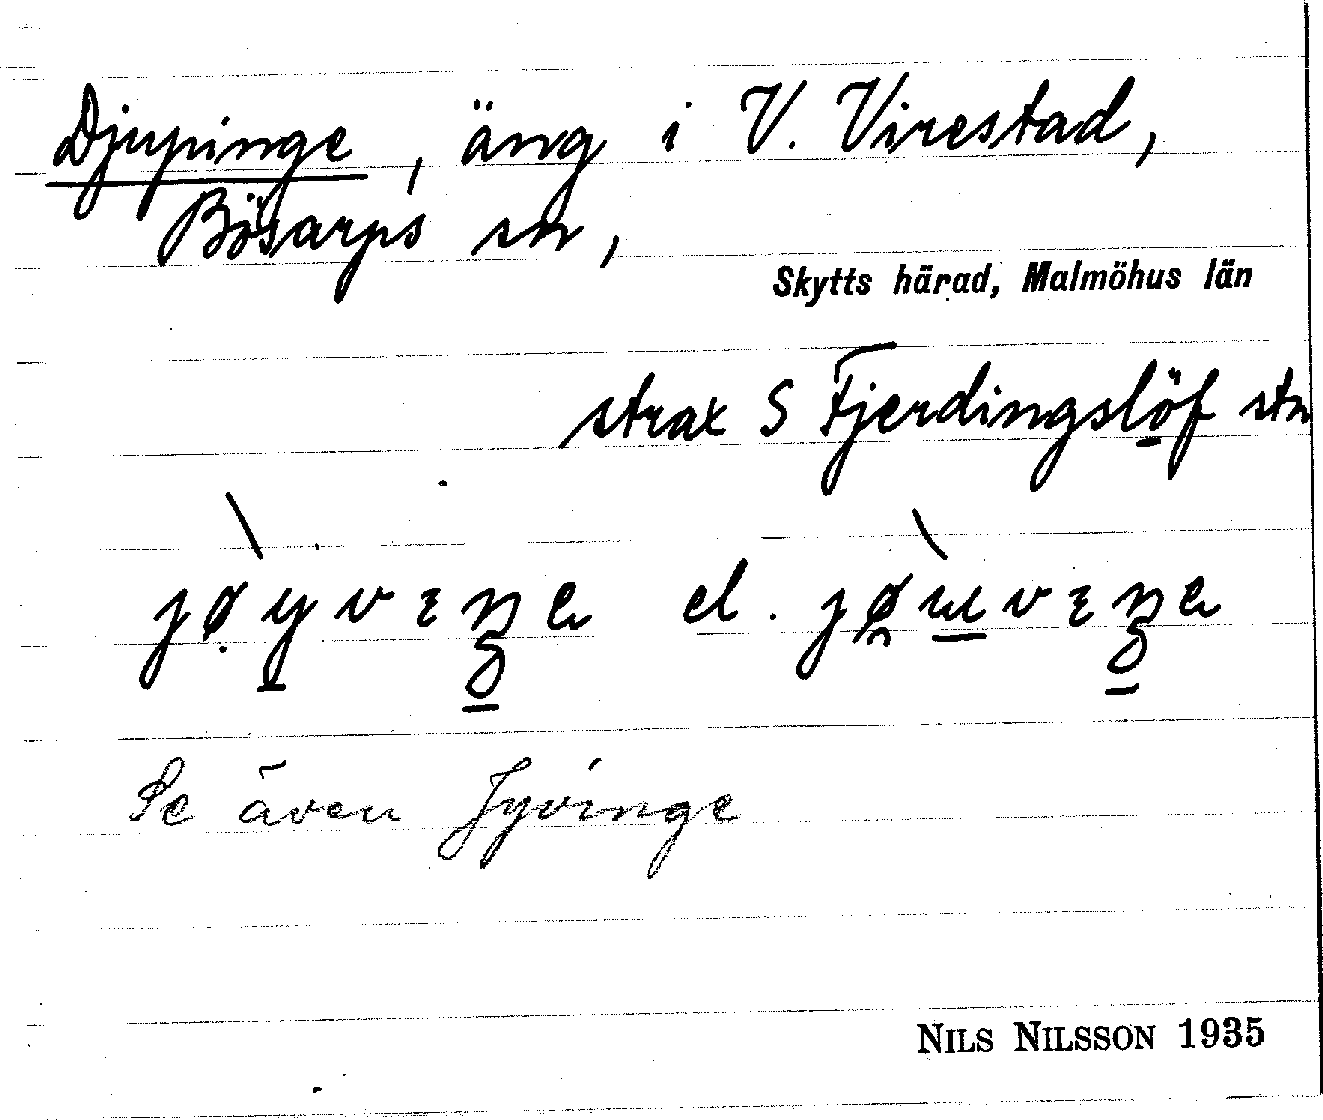 Djupinge, äng i V. Virestad,
Bösarps sn,
Skytts härad, Malmöhus län
strax S Fjerdingslöf stn
el.
Se även Jyvinge
NILS NILSSON 1935